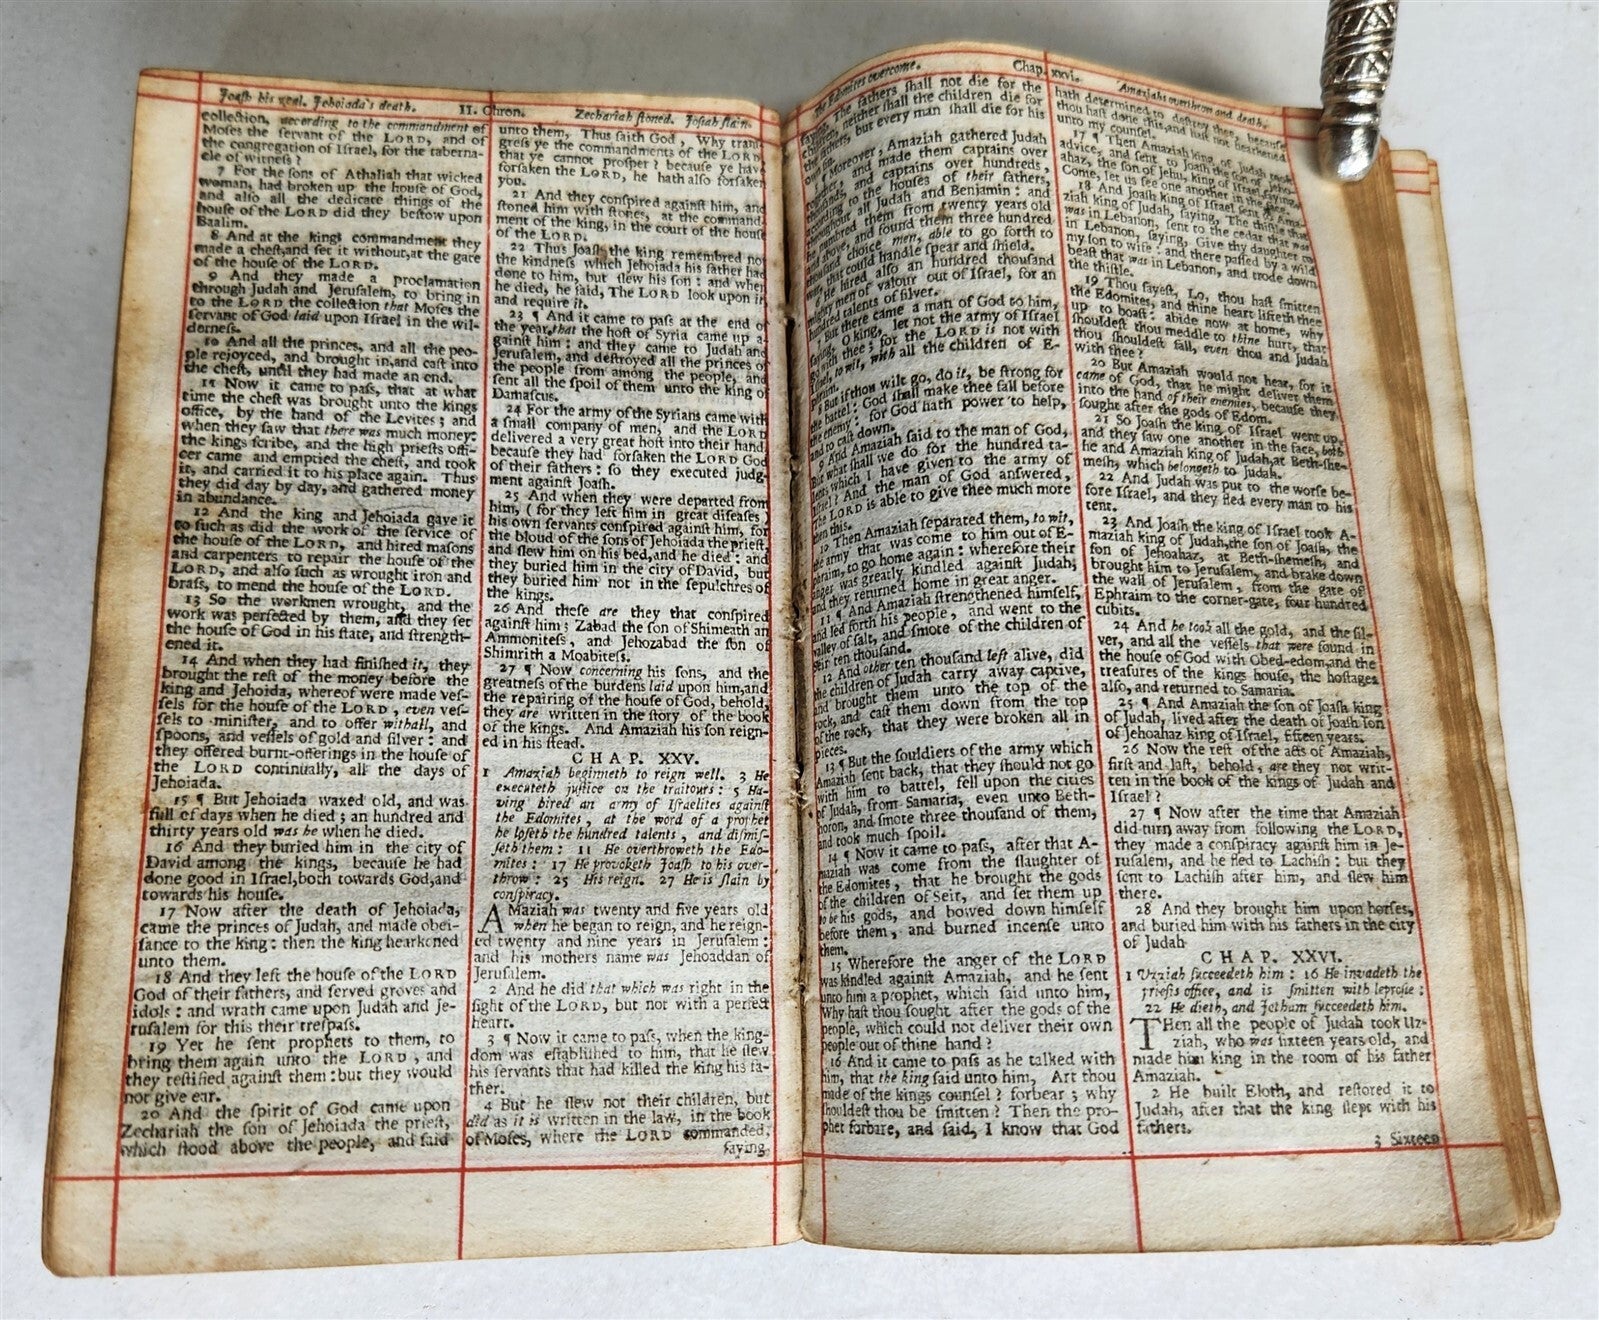 Joash his zeal. Jehoiada's death. II. Chron. Zechariah stoned. Josiah slain.
collection, according to the commandment of
Moses the servant of the LORD, and of
the congregation of Israel, for the taberna-
cle of witness?
7 For the sons of Athaliah that wicked
woman, had broken up the house of God,
and also all the dedicate things of the
house of the LORD did they bestow upon
Baalim.
8 And at the kings commandment they
made a chest,and set it without,at the gate
of the house of the LORD.
9 And they made a proclamation
through Judah and Jerusalem, to bring in
to the LORD the collection that Moses the
servant of God laid upon Israel in the wil-
derness.
10 And all the princes, and all the peo-
ple rejoyced, and brought in,and cast into
the chest, until they had made an end.
11 Now it came to pass, that at what
time the chest was brought unto the kings
office, by the hand of the Levites; and
when they saw that there was much money:
the kings scribe, and the high priests offi-
cer came and emptied the chest, and took
it, and carried it to his place again. Thus
they did day by day, and gathered money
in abundance.
12 And the king and Jehoiada gave it
to such as did the work of the service of
the house of the LORD, and hired masons
and carpenters to repair the house of the
LORD, and also such as wrought iron and
brass, to mend the house of the LORD.
13 So the workmen wrought, and the
work was perfected by them, and they set
the house of God in his state, and strength-
ened it.
14 And when they had finished it, they
brought the rest of the money before the
king and Jehoida, whereof were made ves-
sels for the house of the LORD, even ves-
sels to minister, and to offer withall, and
spoons, and vessels of gold and silver: and
they offered burnt-offerings in the house of
the LORD continually, all the days of
Jehoiada.
15 ¶ But Jehoiada waxed old, and was
full of days when he died; an hundred and
thirty years old was he when he died.
16 And they buried him in the city of
David among the kings, because he had
done good in Israel,both towards God,and
towards his house.
17 Now after the death of Jehoiada,
came the princes of Judah, and made obei-
sance to the king: then the king hearkened
unto them.
18 And they left the house of the LORD
God of their fathers, and served groves and
idols: and wrath came upon Judah and Je-
rusalem for this their trespass.
19 Yet he sent prophets to them, to
bring them again unto the LORD, and
they testified against them:but they would
not give ear.
20 And the spirit of God came upon
Zechariah the son of Jehoiada the priest,
which stood above the people, and said
unto them, Thus saith God, Why trans-
gress ye the commandments of the LORD
that ye cannot prosper? because ye have
forsaken the LORD, he hath also forsaken
you.
21 And they conspired against him, and
stoned him with stones, at the command-
ment of the king, in the court of the house
of the LORD.
22 Thus Joash the king remembred not
the kindness which Jehoiada his father had
done to him, but slew his son: and when
he died, he said, The LORD look upon it
and require it.
23 ¶ And it came to pass at the end of
the year,that the host of Syria came up a-
gainst him: and they came to Judah and
Jerusalem, and destroyed all the princes of
the people from among the people, and
sent all the spoil of them unto the king of
Damascus.
24 For the army of the Syrians came with
a small company of men, and the LORD
delivered a very great host into their hand
because they had forsaken the LORD God
of their fathers: so they executed judg-
ment against Joash.
25 And when they were departed from
him, (for they left him in great diseases)
his own servants conspired against him, for
the bloud of the sons of Jehoiada the priest,
and slew him on his bed,and he died: and
they buried him in the city of David, but
they buried him not in the sepulchres of
the kings.
26 And these are they that conspired
against him; Zabad the son of Shimeath an
Ammonitess, and Jehozabad the son of
Shimrith a Moabitess.
27 ¶ Now concerning his sons, and the
greatness of the burdens laid upon him,and
the repairing of the house of God, behold,
they are written in the story of the book
of the kings. And Amaziah his son reign-
ed in his stead.
CHAP. XXV.
1 Amaziah beginneth to reign well. 3 He
executeth justice on the traitours: 5 Ha-
ving hired an army of Israelites against
the Edomites, at the word of a prophet
he loseth the hundred talents, and dismis-
seth them: 11 He overthroweth the Edo-
mites: 17 He provoketh Joash to his over-
throw: 25 His reign. 27 He is slain by
conspiracy.
AMaziah was twenty and five years old
when he began to reign, and he reign-
ed twenty and nine years in Jerusalem:
and his mothers name was Jehoaddan of
Jerusalem.
2 And he did that which was right in the
sight of the LORD, but not with a perfect
heart.
3 ¶ Now it came to pass, when the king-
dom was established to him, that he slew
his servants that had killed the king his fa-
ther.
4 But he slew not their children, but
did as it is written in the law, in the book
of Moses, where the LORD commanded,
saying,
The Edomites overcome. Chap. xxvi. Amaziahs overthrow and death.
saying, The fathers shall not die for the
children, neither shall the children die for
the fathers, but every man shall die for his
own sin.
Moreover, Amaziah gathered Judah
together, and made them captains over
thousands, and captains over hundreds,
according to the houses of their fathers,
throughout all Judah and Benjamin: and
he numbred them from twenty years old
and above, and found them three hundred
thousand choice men, able to go forth to
war, that could handle spear and shield.
6 He hired also an hundred thousand
mighty men of valour out of Israel, for an
hundred talents of silver.
7 But there came a man of God to him,
saying, O king, let not the army of Israel
go with thee; for the LORD is not with
Israel, to wit, with all the children of E-
phraim.
8 But if thou wilt go, do it, be strong for
the battel: God shall make thee fall before
the enemy: for God hath power to help,
and to cast down.
9 And Amaziah said to the man of God,
But what shall we do for the hundred ta-
lents which I have given to the army of
Israel? And the man of God answered,
The LORD is able to give thee much more
then this.
10 Then Amaziah separated them, to wit,
the army that was come to him out of E-
phraim, to go home again: wherefore their
anger was greatly kindled against Judah,
and they returned home in great anger.
11 ¶ And Amaziah strengthened himself,
and led forth his people, and went to the
valley of salt, and smote of the children of
Seir ten thousand.
12 And other ten thousand left alive, did
the children of Judah carry away captive,
and brought them unto the top of the
rock, and cast them down from the top
of the rock, that they were broken all in
pieces.
13 ¶ But the souldiers of the army which
Amaziah sent back, that they should not go
with him to battel, fell upon the cities
of Judah, from Samaria, even unto Beth-
horon, and smote three thousand of them,
and took much spoil.
14 ¶ Now it came to pass, after that A-
maziah was come from the slaughter of
the Edomites, that he brought the gods
of the children of Seir, and set them up
to be his gods, and bowed down himself
before them, and burned incense unto
them.
15 Wherefore the anger of the LORD
was kindled against Amaziah, and he sent
unto him a prophet, which said unto him,
Why hast thou sought after the gods of the
people, which could not deliver their own
people out of thine hand?
16 And it came to pass as he talked with
him, that the king said unto him, Art thou
made of the kings counsel? forbear; why
shouldest thou be smitten? Then the pro-
phet forbare, and said, I know that God
hath determined to destroy thee, because
thou hast done this,and hast not hearkened
unto my counsel.
17 ¶ Then Amaziah king of Judah took
advice, and sent to Joash the son of Jeho-
ahaz, the son of Jehu, king of Israel, saying,
Come, let us see one another in the face.
18 And Joash king of Israel sent to Ama-
ziah king of Judah, saying, The thistle that
was in Lebanon, sent to the cedar that was
in Lebanon, saying, Give thy daughter to
my son to wife: and there passed by a wild
beast that was in Lebanon, and trode down
the thistle.
19 Thou sayest, Lo, thou hast smitten
the Edomites, and thine heart lifteth thee
up to boast: abide now at home, why
shouldest thou meddle to thine hurt, that
thou shouldest fall, even thou and Judah
with thee?
20 But Amaziah would not hear, for it
came of God, that he might deliver them
into the hand of their enemies, because they
sought after the gods of Edom.
21 So Joash the king of Israel went up,
and they saw one another in the face, both
he and Amaziah king of Judah,at Beth-she-
mesh, which belongeth to Judah.
22 And Judah was put to the worse be-
fore Israel, and they fled every man to his
tent.
23 And Joash the king of Israel took A-
maziah king of Judah,the son of Joash, the
son of Jehoahaz, at Beth-shemesh, and
brought him to Jerusalem, and brake down
the wall of Jerusalem, from the gate of
Ephraim to the corner-gate, four hundred
cubits.
24 And he took all the gold, and the sil-
ver, and all the vessels that were found in
the house of God with Obed-edom,and the
treasures of the kings house, the hostages
also, and returned to Samaria.
25 ¶ And Amaziah the son of Joash king
of Judah, lived after the death of Joash son
of Jehoahaz king of Israel, fifteen years.
26 Now the rest of the acts of Amaziah,
first and last, behold, are they not writ-
ten in the book of the kings of Judah and
Israel?
27 ¶ Now after the time that Amaziah
did turn away from following the LORD,
they made a conspiracy against him in Je-
rusalem, and he fled to Lachish: but they
sent to Lachish after him, and slew him
there.
28 And they brought him upon horses,
and buried him with his fathers in the city
of Judah
CHAP. XXVI.
1 Uzziah succeedeth him: 16 He invadeth the
priests office, and is smitten with leprosie:
22 He dieth, and Jotham succeedeth him.
THen all the people of Judah took Uz-
ziah, who was sixteen years old, and
made him king in the room of his father
Amaziah.
2 He built Eloth, and restored it to
Judah, after that the king slept with his
fathers.
3 Sixteen